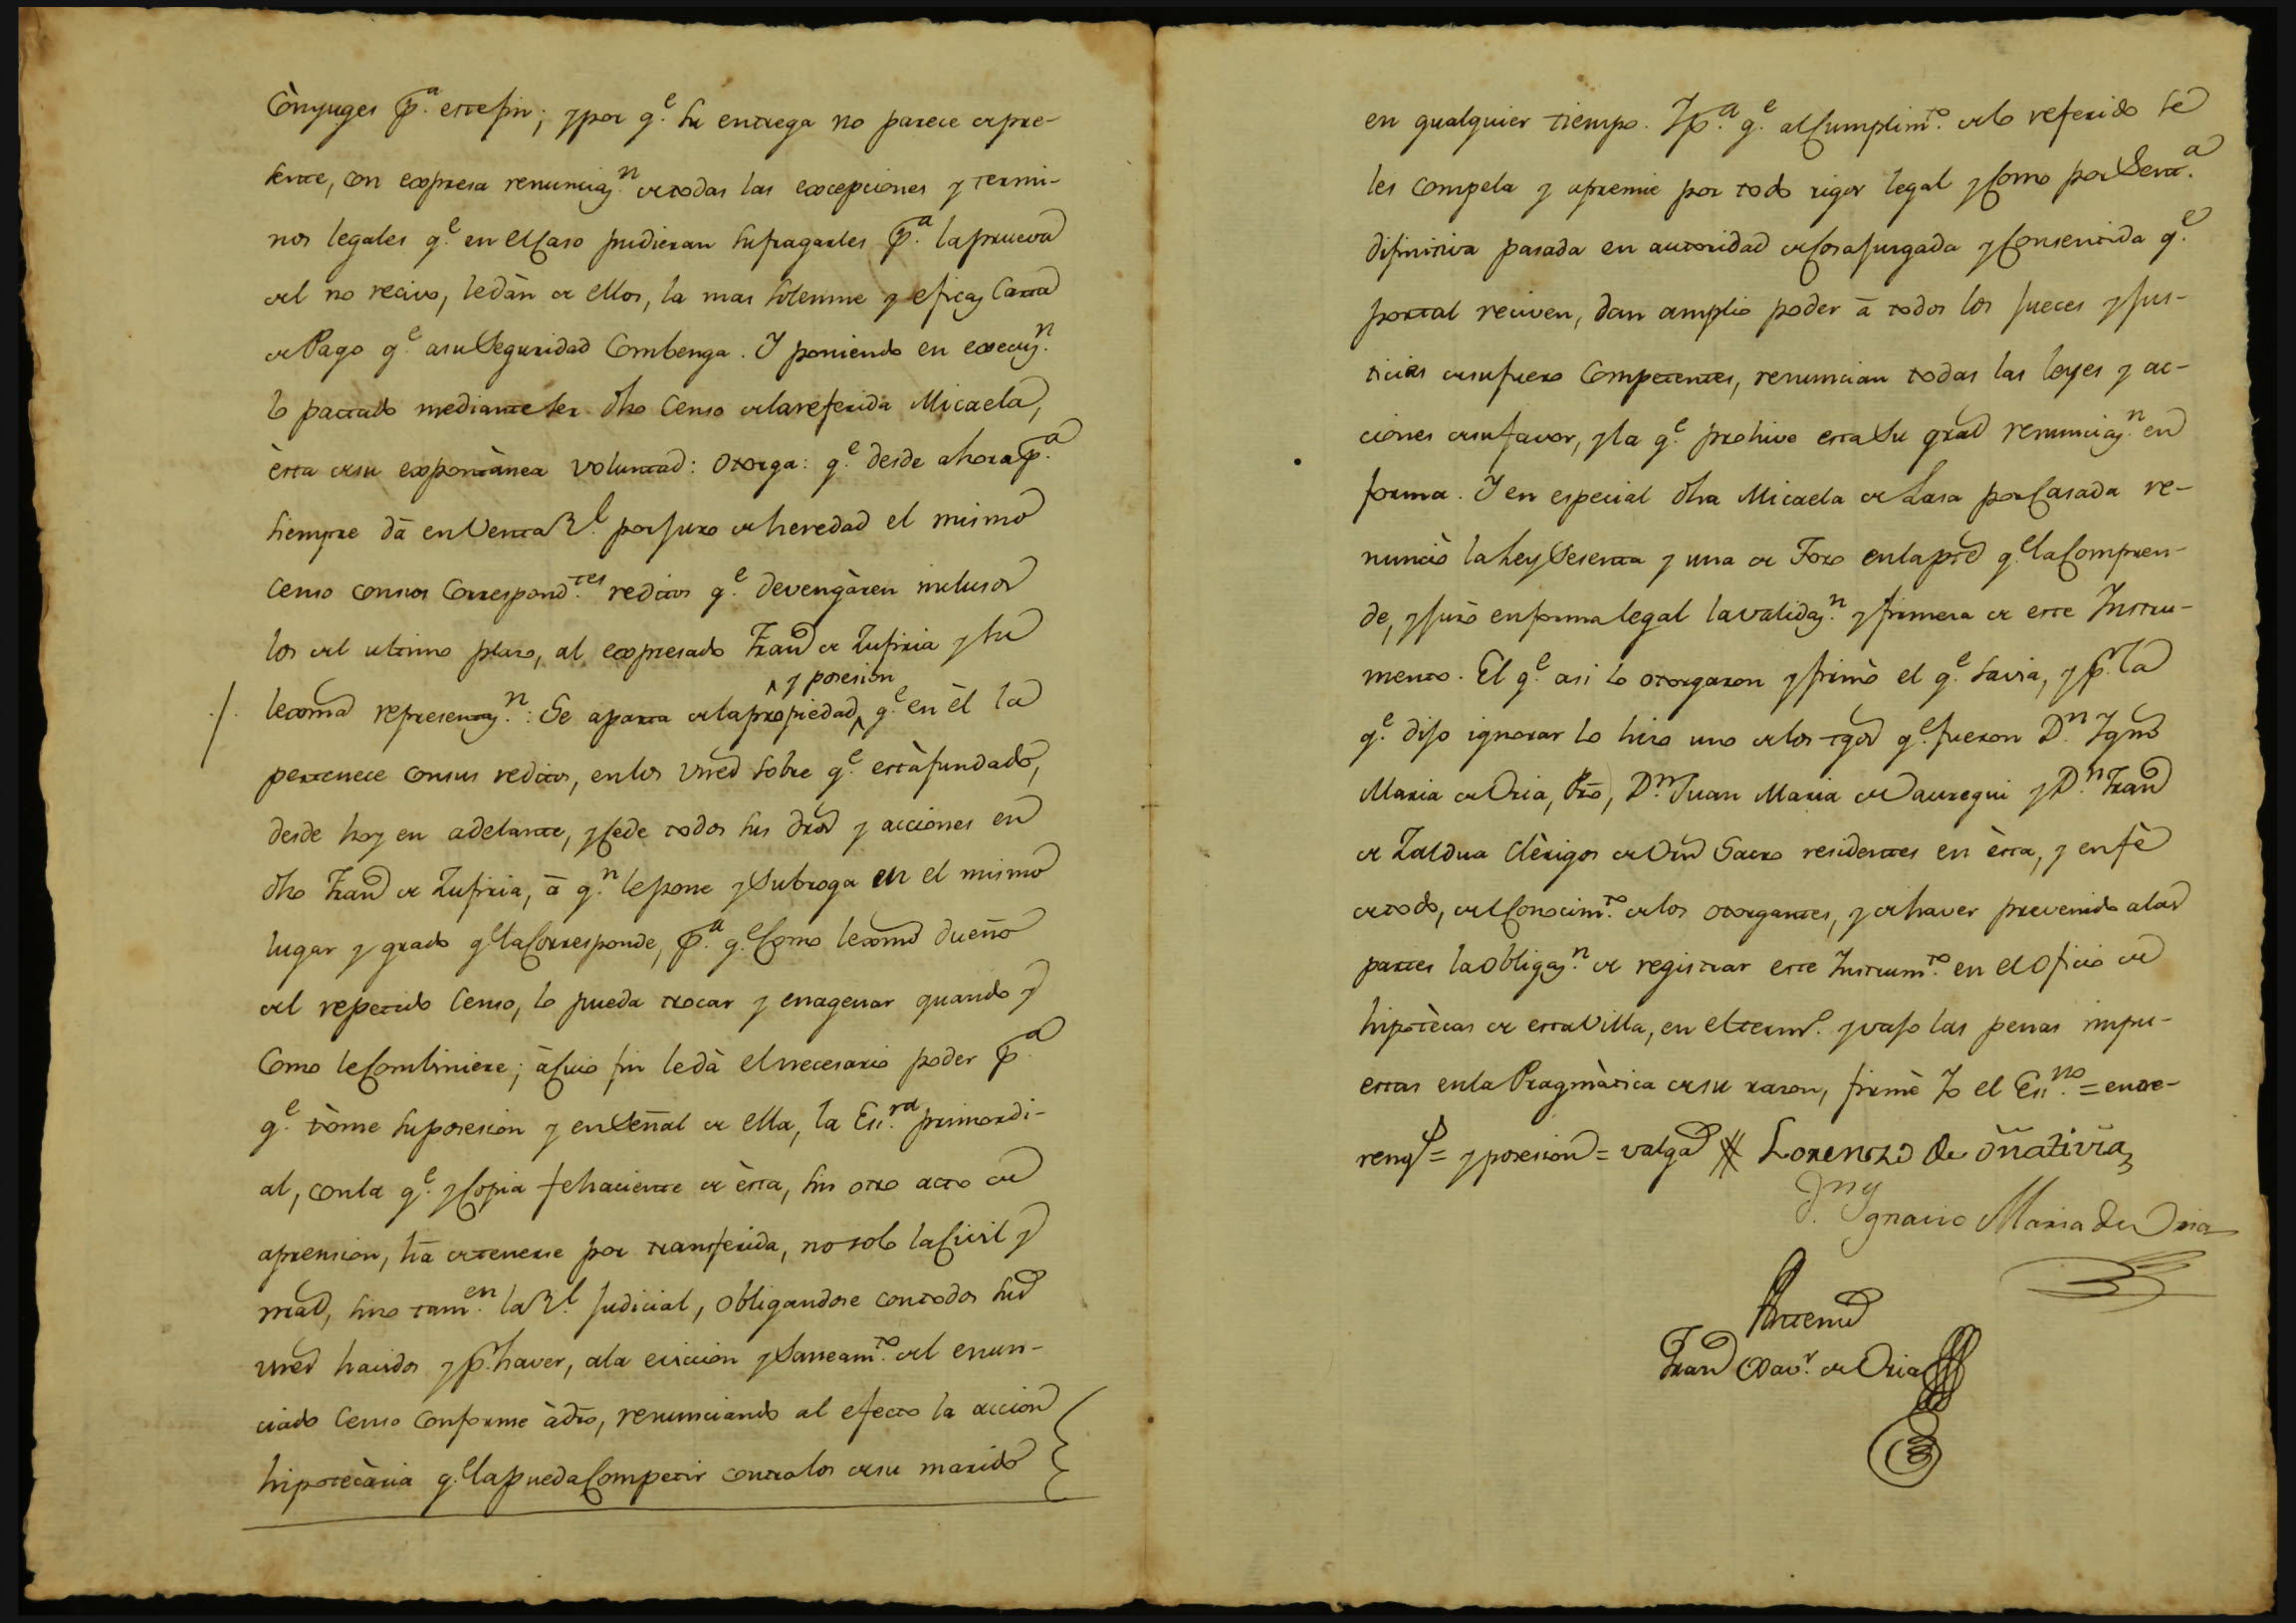 Cònyuges p.ª este fin; y por q.e su entrega no parece de pre-
sente, con expresa renunciaz.n de todas las excepciones y termi-
nos legales q.e en el Caso pudieran sufragarles p.ª la prueva
del no recivo, le dàn de ellos, la mas solemne y eficaz Carta
de Pago q.e a su Seguridad Combenga. Y poniendo en execuz.n
lo pactado mediante ser dho Censo de la referida Micaela,
èsta de su expontànea voluntad: Otorga: q.e desde ahora p.ª
siempre dà en Venta R.l por juro de heredad el mismo
Censo con sus Correspond.tes reditos q.e devengàren inclusos
los del ultimo plazo, al expresado Fran.co de Zufiria y su
lexma representaz.n: Se aparta de la propiedad ^ y posesion q.e en èl la
pertenece con sus reditos, en los vnes sobre q.e està fundado,
desde hoy en adelante, y Cede todos sus dros y acciones en
dho Fran.co de Zufiria, à q.n le pone y Subroga en el mismo
lugar y grado q.e la Corresponde, p.ª q.e Como lexmo dueño
del repetido Censo, lo pueda trocar y enagenar quando y
Como le Combiniere; à Cuio fin le dà el necesario poder p.ª
q.e tòme su posesion y en Señal de ella, la Es.ra primordi-
al, con la q.e y Copia fehaciente de èsta, sin otro acto de
aprension, hà de tenerse por transferida, no solo la Civil y
nral, sino tam.en la R.l judicial, Obligandose con todos sus
vnes havidos y p.r haver, a la eviccion y Saneam.to del enun-
ciado Censo Conforme à dro, renunciando al efecto la accion
hipotecària q.e la pueda Competir contra los de su marido
en qualquier tiempo. Y p.ª q.e al Cumplim.to de lo referido se
les Compela y apremie por todo rigor legal y Como por Sent.ª
difinitiva pasada en autoridad de Cosa juzgada y Consentida q.e
por tal reciven, dan amplio poder à todos los jueces y jus-
ticias de su fuero Competentes, renuncian todas las leyes y ac-
ciones de su favor, y la q.e prohive esta Su gral renunciaz.n en
forma. Y en especial dha Micaela de Lasa por Casada re-
nunciò la Ley Sesenta y una de Toro en la pte q.e la Compren-
de, y jurò en forma legal la validaz.n y firmeza de este Instru-
mento. El q.e asi lo otorgaron y firmò el q.e Savia, y p.r la
q.e dijo ignorar lo hizo uno de los tgos q.e fueron D.n Ygn.o
Maria de Oria, Pro, D.n Juan Maria de Jauregui y D.n Fran.co
de Zaldua Clèrigos de Orn Sacro residentes en èsta, y en fè
de todo, del Conocim.to de los otorgantes, y de haver prevenido a las
partes la Obligaz.n de registrar este Instrum.to en el Oficio de
hipotècas de esta Villa, en el termo. y vajo las penas impu-
estas en la Pragmàtica de su razon, firmè Yo el Es.no = entre-
reng.s = y posesion = valga # Lorenzo de oñativia
D.n Ygnacio Maria de Oria
Ante mi
Fran.co Xav.r de Oria